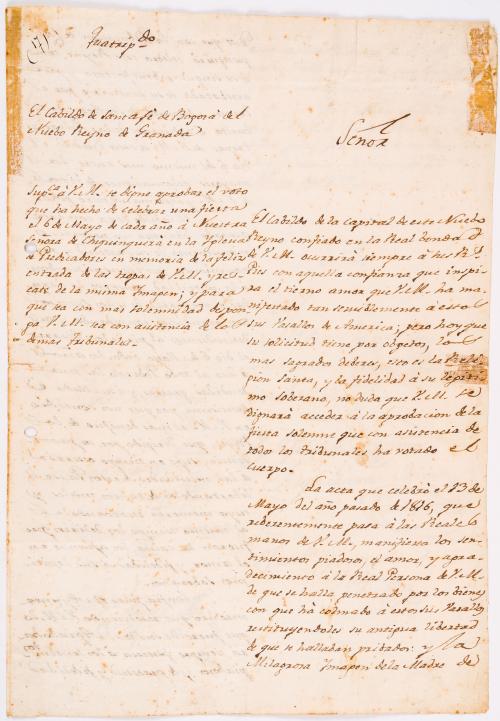 Quatrip.do
El Cabildo de Santa fé de Bogotá del
Nuebo Reyno de Granada
Señor
Sup.ca á V.M. se digne aprobar el voto
que ha hecho de celebrar una fiesta
el 6 de Mayo de cada año á Nuestra
Señora de Chiquinquirá en la Yglesia
de Predicadores en memoria de la feliz
entrada de las tropas de V.M. y res
cate de la misma Ymagen; y para
que sea con mas solemnidad dispon
ga V.M. sea con asistencia de lo
demas tribunales.
El Cabildo de la Capital de este Nuebo
Reyno confiado en la Real bondad
de V.M. ocurrirá siempre á sus R.s
Pies con aquella confianza que inspi
ra el tierno amor que V.M. ha ma
nifestado tan sensiblemente á estos
sus Vasallos de America; pero hoy que
su solicitud tiene por objetos, los
mas sagrados deberes, esto es la Reli
gion Santa, y la fidelidad á su legiti
mo soberano, no duda que V.M. se
dignará acceder á la aprobacion de la
fiesta solemne que con asistencia de
todos los tribunales ha votado el
Cuerpo.
La acta que celebró el 13 de
Mayo del año pasado de 1816, que
reberentemente pasa á las Reales
manos de V.M., manifiesta los sen
timientos piadosos, el amor, y agra
decimiento á la Real Persona de V.M.
de que se halla penetrado por los bienes
con que há colmado á estos sus Vasallos
restituyendoles su antigua libertad
de que se hallaban pribados: y la
Milagrosa Ymagen de la Madre de